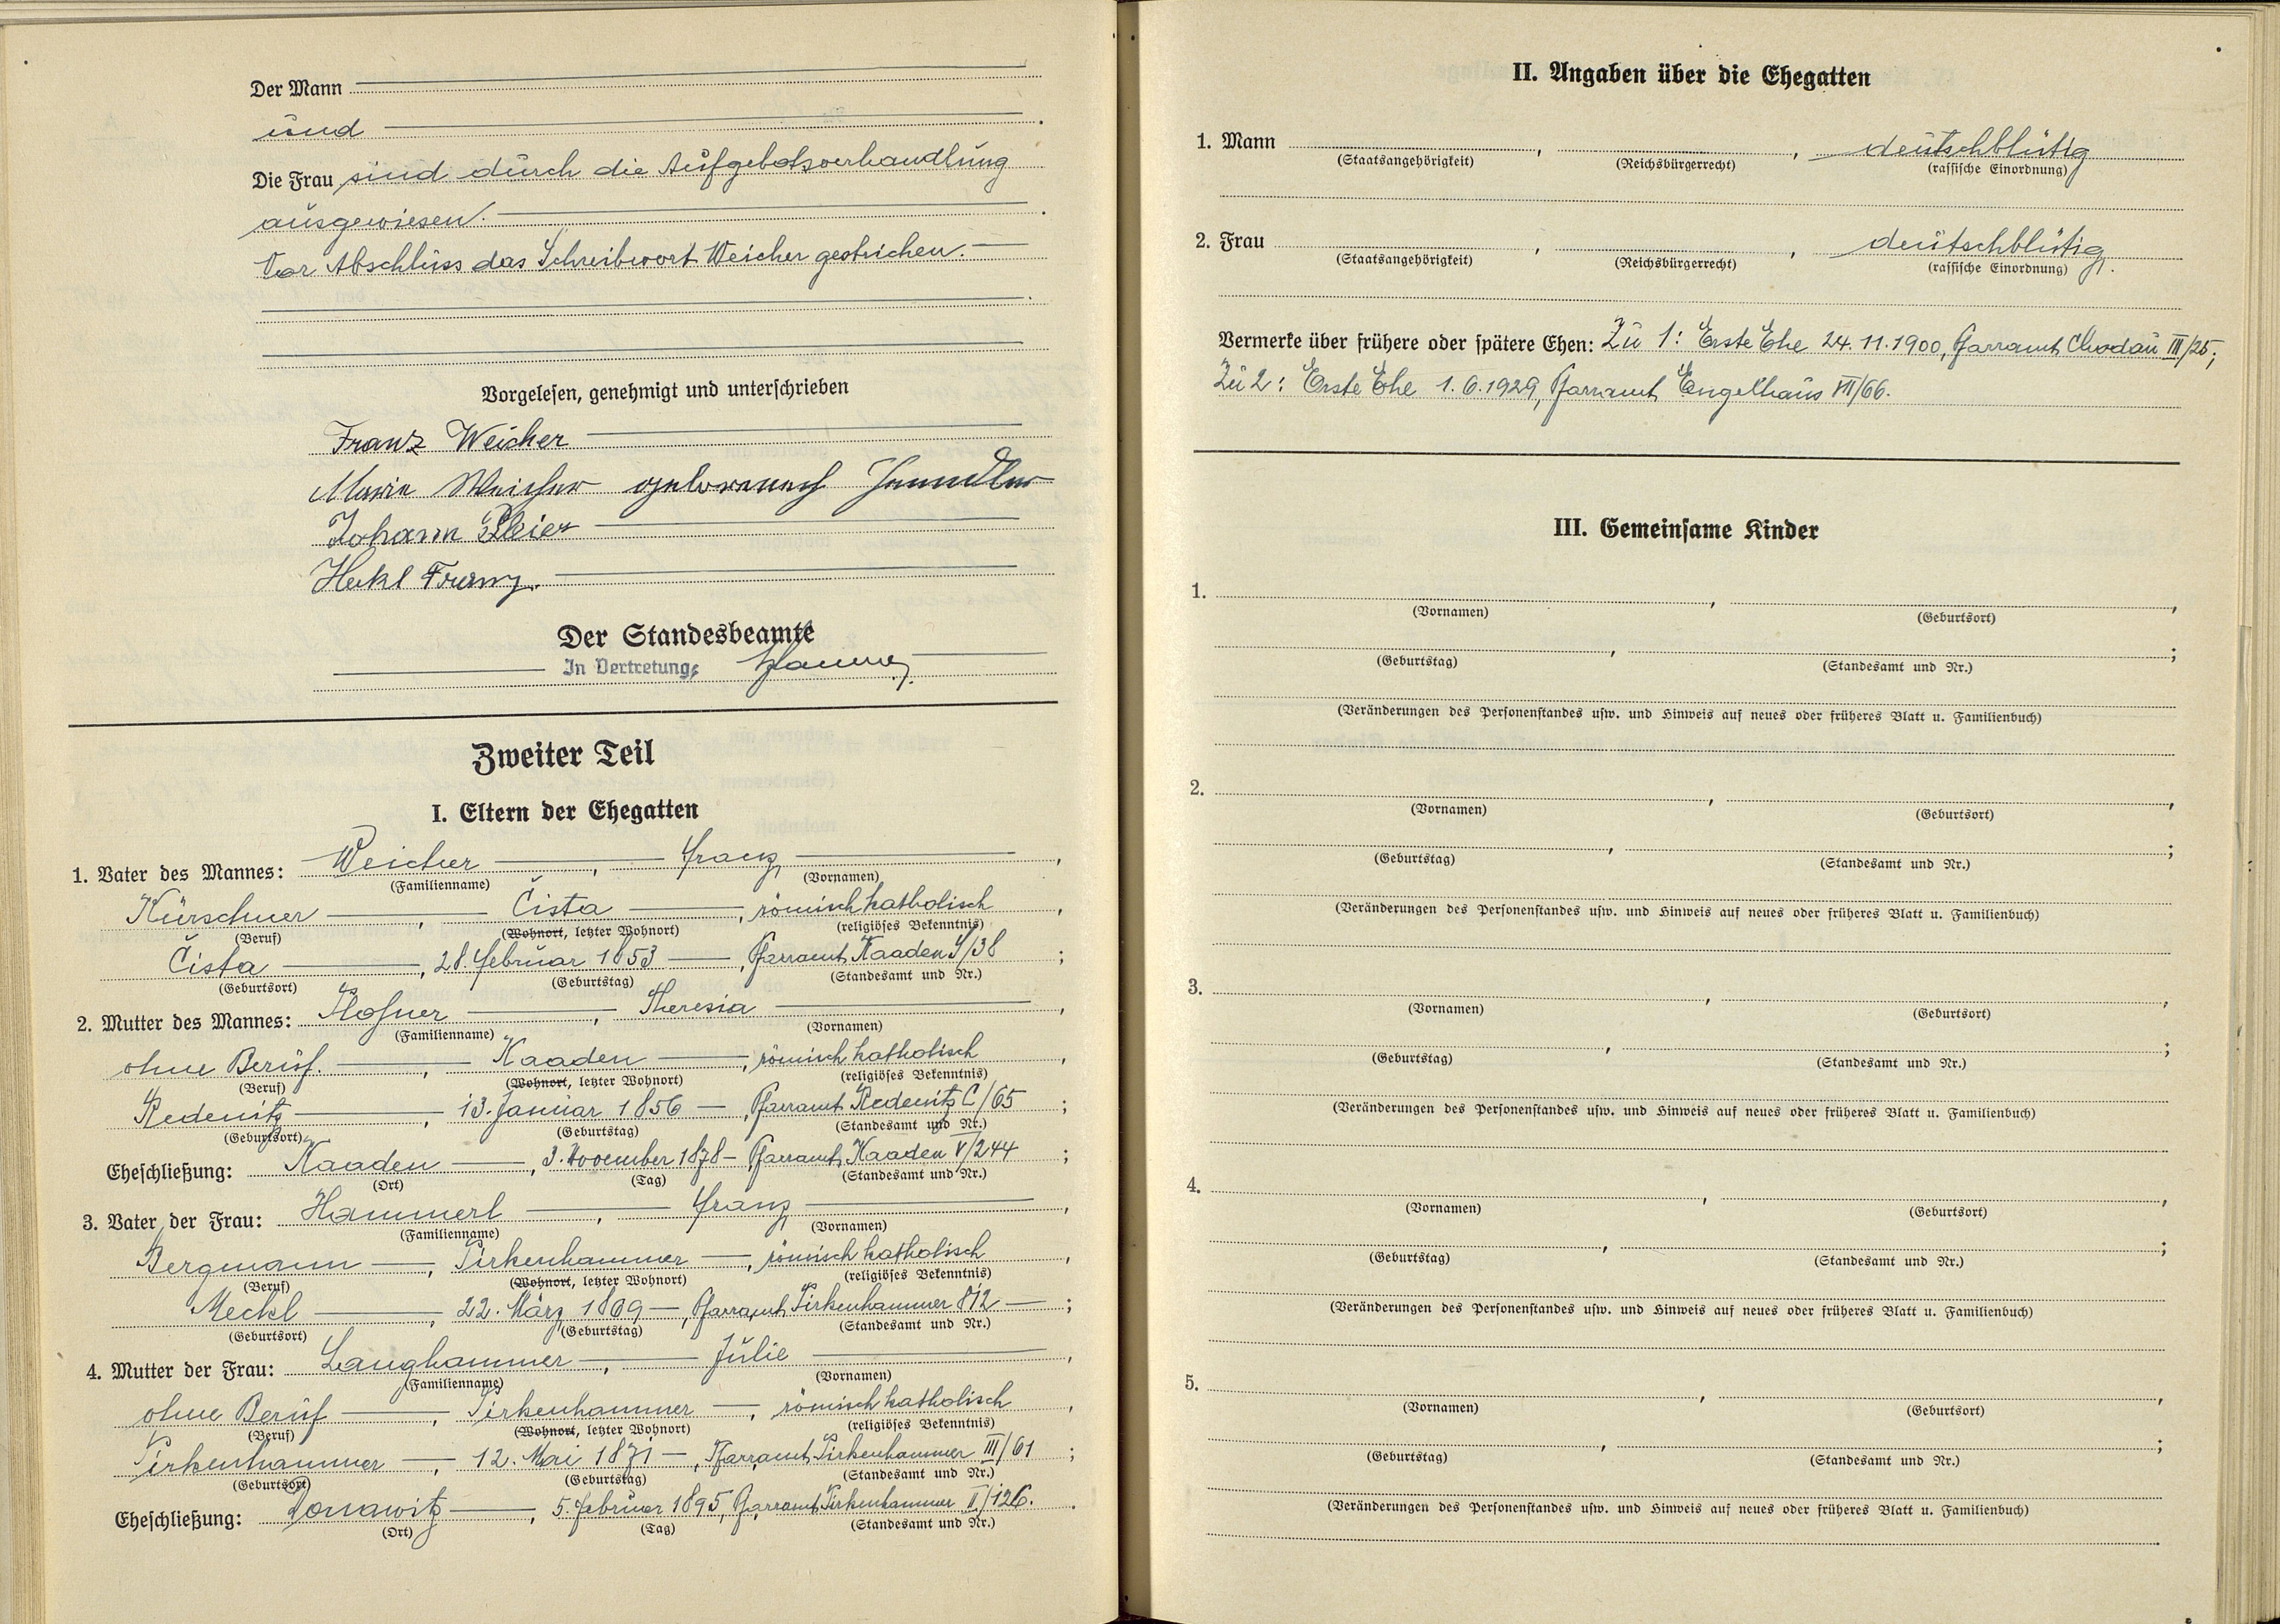 Der Mann
und
Die Frau sind durch die Aufgebotsverhandlung
ausgewiesen.
Vor Abschluss das Schreibwort Weicher gestrichen.
Vorgelesen, genehmigt und unterschrieben
Franz Weicher
Marie Weicher geborene
Johann
Heckl Franz.
Der Standesbeamte
In Vertretung:
Zweiter Teil
I. Eltern der Ehegatten
1. Vater des Mannes: Weicher, Franz,
(Familienname) (Vornamen)
Kürschner, Čista, römisch katholisch,
(Beruf) (Wohnort, letzter Wohnort) (religiöses Bekenntnis)
Čista, 28. Februar 1853, Pfarramt Kaaden /38;
(Geburtsort) (Geburtstag) (Standesamt und Nr.)
2. Mutter des Mannes: , Theresia,
(Familienname) (Vornamen)
ohne Beruf., Kaaden, römisch katholisch,
(Beruf) (Wohnort, letzter Wohnort) (religiöses Bekenntnis)
Redenitz, 13. Januar 1856, Pfarramt Redenitz C/65;
(Geburtsort) (Geburtstag) (Standesamt und Nr.)
Eheschließung: Kaaden, 3. November 1878 Pfarramt Kaaden V/244;
(Ort) (Tag) (Standesamt und Nr.)
3. Vater der Frau: Hammerl, Franz,
(Familienname) (Vornamen)
Bergmann, Pirkenhammer, römisch katholisch,
(Beruf) (Wohnort, letzter Wohnort) (religiöses Bekenntnis)
Meckl, 22. März 1869, Pfarramt Pirkenhammer;
(Geburtsort) (Geburtstag) (Standesamt und Nr.)
4. Mutter der Frau: Langhammer, Julie,
(Familienname) (Vornamen)
ohne Beruf, Pirkenhammer, römisch katholisch,
(Beruf) (Wohnort, letzter Wohnort) (religiöses Bekenntnis)
Pirkenhammer, 12. Mai 1871, Pfarramt Pirkenhammer III/61;
(Geburtsort) (Geburtstag) (Standesamt und Nr.)
Eheschließung: Donawitz, 5. Februar 1895, Pfarramt Pirkenhammer II/126.
(Ort) (Tag) (Standesamt und Nr.)
II. Angaben über die Ehegatten
1. Mann , , deutschblütig
(Staatsangehörigkeit) (Reichsbürgerrecht) (rassische Einordnung)
2. Frau , , deutschblütig.
(Staatsangehörigkeit) (Reichsbürgerrecht) (rassische Einordnung)
Vermerke über frühere oder spätere Ehen: Zu 1: Erste Ehe 24.11.1900, Pfarramt Chodau III/25;
Zu 2: Erste Ehe 1.6.1929, Pfarramt Engelhaus VII/66.
III. Gemeinsame Kinder
1. , ,
(Vornamen) (Geburtsort)
, ;
(Geburtstag) (Standesamt und Nr.)
(Veränderungen des Personenstandes usw. und Hinweis auf neues oder früheres Blatt u. Familienbuch)
2. , ,
(Vornamen) (Geburtsort)
, ;
(Geburtstag) (Standesamt und Nr.)
(Veränderungen des Personenstandes usw. und Hinweis auf neues oder früheres Blatt u. Familienbuch)
3. , ,
(Vornamen) (Geburtsort)
, ;
(Geburtstag) (Standesamt und Nr.)
(Veränderungen des Personenstandes usw. und Hinweis auf neues oder früheres Blatt u. Familienbuch)
4. , ,
(Vornamen) (Geburtsort)
, ;
(Geburtstag) (Standesamt und Nr.)
(Veränderungen des Personenstandes usw. und Hinweis auf neues oder früheres Blatt u. Familienbuch)
5. , ,
(Vornamen) (Geburtsort)
, ;
(Geburtstag) (Standesamt und Nr.)
(Veränderungen des Personenstandes usw. und Hinweis auf neues oder früheres Blatt u. Familienbuch)